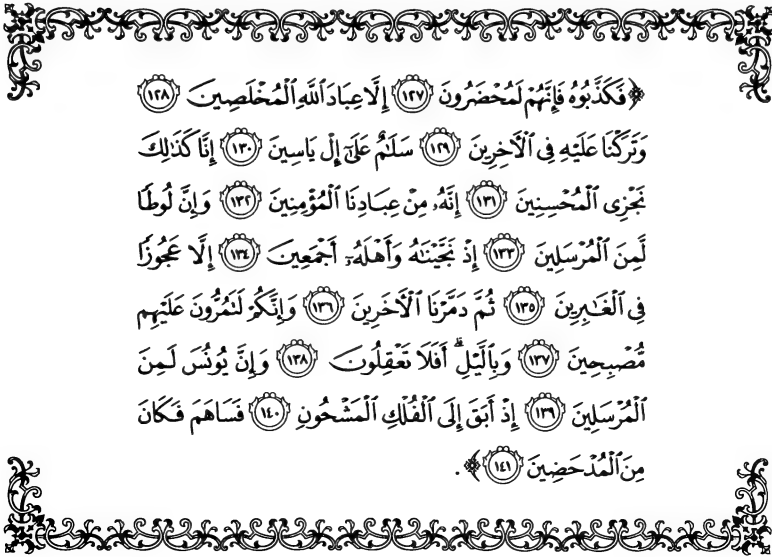 ﴿ فَكَذَّبُوهُ فَإِنَّهُمْ لَمُحْضَرُونَ ١٢٧ إِلَّا عِبَادَ ٱللَّهِ ٱلْمُخْلَصِينَ ١٢٨
وَتَرَكْنَا عَلَيْهِ فِى ٱلْـَٔاخِرِينَ ١٢٩ سَلَـٰمٌ عَلَىٰٓ إِلْ يَاسِينَ ١٣٠ إِنَّا كَذَٰلِكَ
نَجْزِى ٱلْمُحْسِنِينَ ١٣١ إِنَّهُۥ مِنْ عِبَادِنَا ٱلْمُؤْمِنِينَ ١٣٢ وَإِنَّ لُوطًا
لَّمِنَ ٱلْمُرْسَلِينَ ١٣٣ إِذْ نَجَّيْنَـٰهُ وَأَهْلَهُۥٓ أَجْمَعِينَ ١٣٤ إِلَّا عَجُوزًا
فِى ٱلْغَـٰبِرِينَ ١٣٥ ثُمَّ دَمَّرْنَا ٱلْـَٔاخَرِينَ ١٣٦ وَإِنَّكُمْ لَتَمُرُّونَ عَلَيْهِم
مُّصْبِحِينَ ١٣٧ وَبِٱلَّيْلِ ۗ أَفَلَا تَعْقِلُونَ ١٣٨ وَإِنَّ يُونُسَ لَمِنَ
ٱلْمُرْسَلِينَ ١٣٩ إِذْ أَبَقَ إِلَى ٱلْفُلْكِ ٱلْمَشْحُونِ ١٤٠ فَسَاهَمَ فَكَانَ
مِنَ ٱلْمُدْحَضِينَ ١٤١ ﴾ .